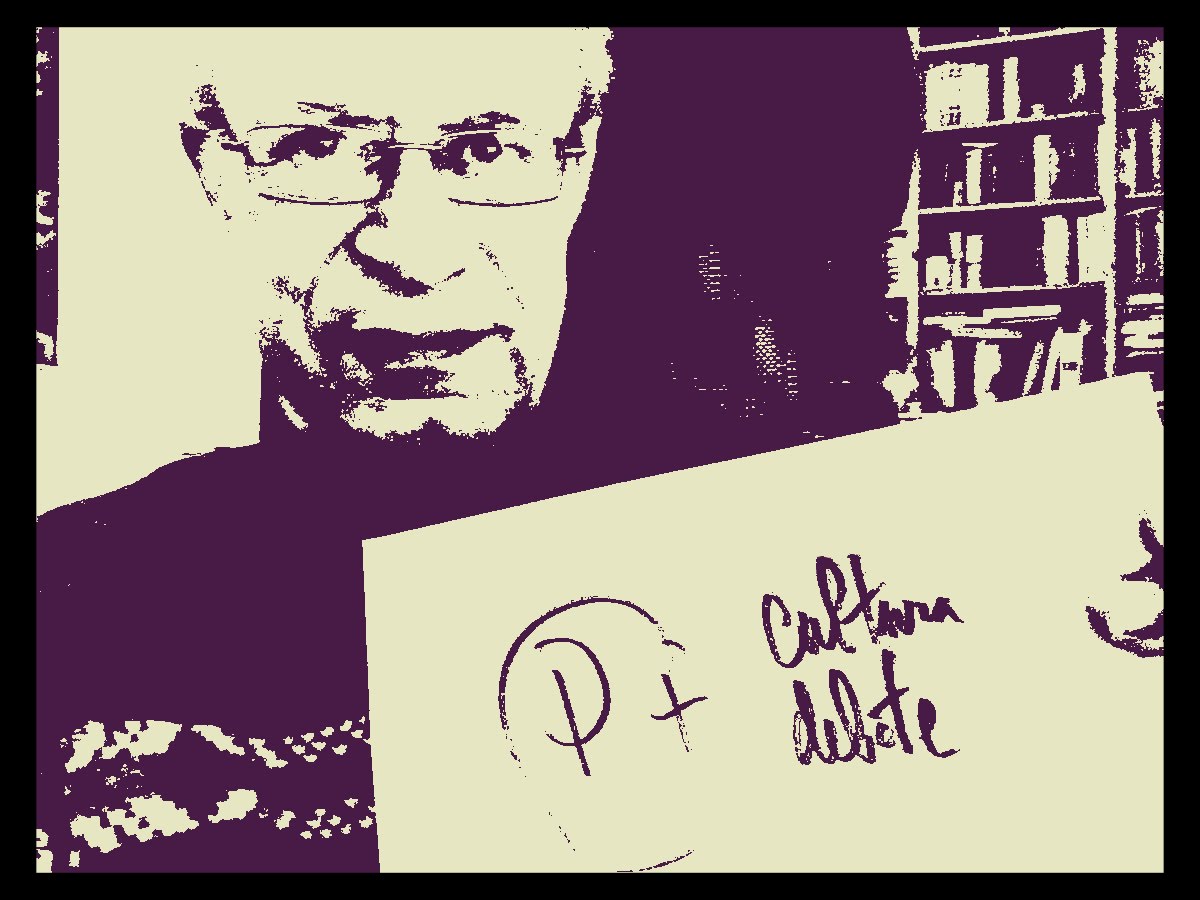 P+
cultura
debate